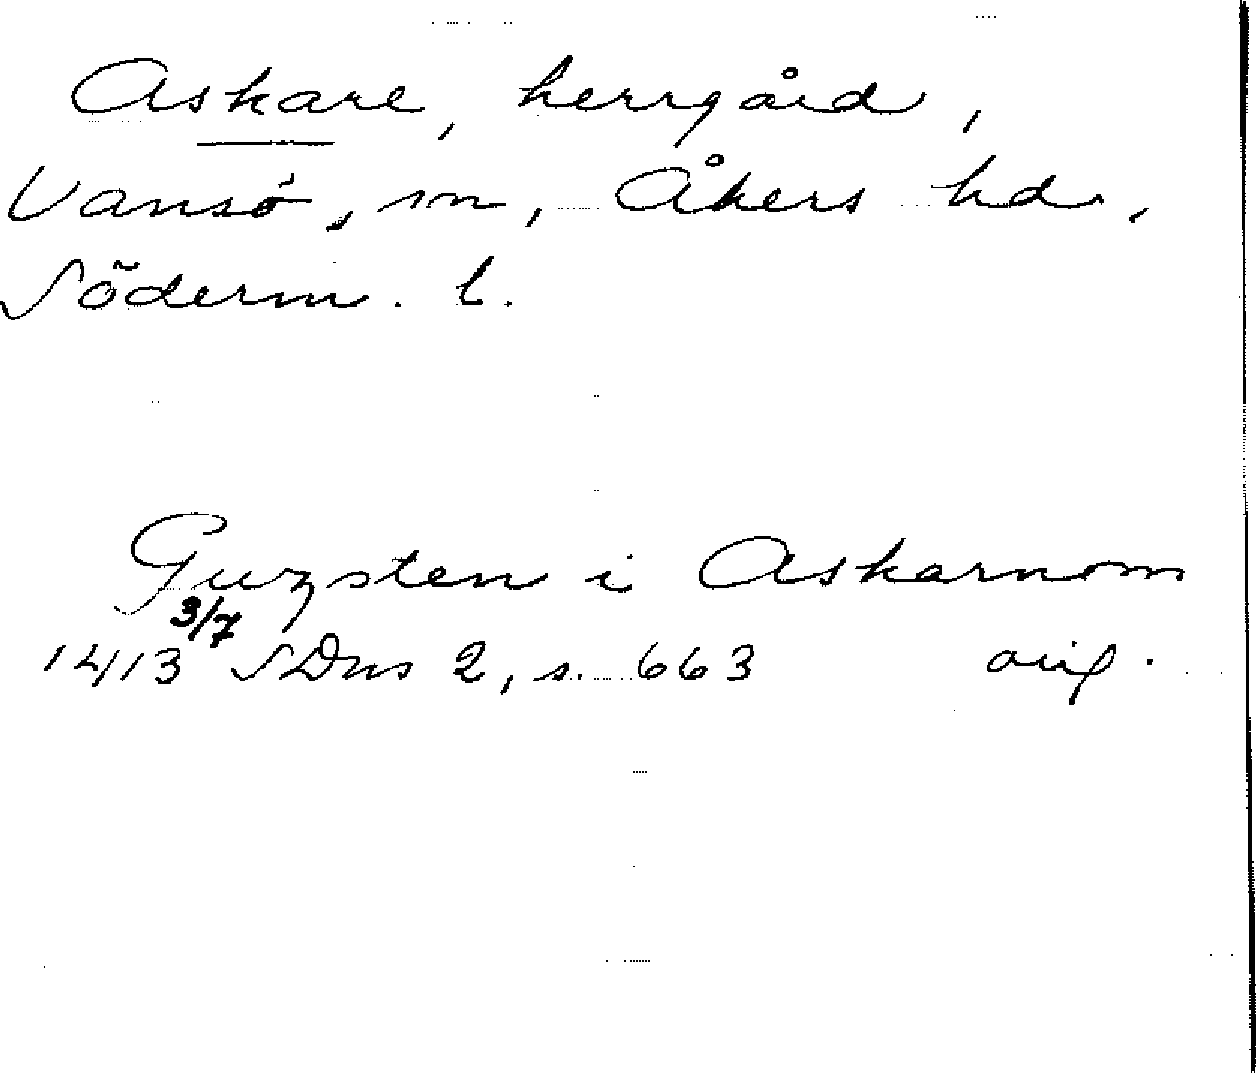 Askare, herrgård,
Vansö, sn, Åkers hd,
Söderm. l.
Guzsten i Askarnom
3/7
1413 SDns 2, s. 663 orig.